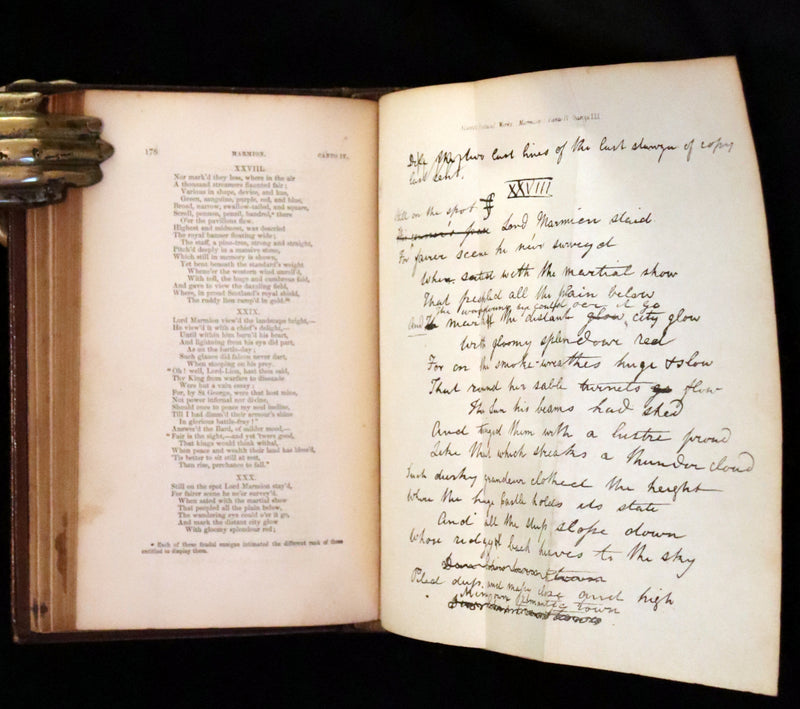 178 MARMION. CANTO IV.
XXVIII.
Nor mark'd they less, where in the air
A thousand streamers flaunted fair;
Various in shape, device, and hue,
Green, sanguine, purple, red, and blue,
Broad, narrow, swallow-tailed, and square,
Scroll, pennon, pensil, bandrol,* there
O'er the pavilions flew.
Highest and midmost, was descried
The royal banner floating wide;
The staff, a pine-tree, strong and straight,
Pitch'd deeply in a massive stone,
Which still in memory is shown,
Yet bent beneath the standard's weight
Whene'er the western wind unroll'd,
With toil, the huge and cumbrous fold,
And gave to view the dazzling field,
Where, in proud Scotland's royal shield,
The ruddy lion ramp'd in gold.*
XXIX.
Lord Marmion view'd the landscape bright,—
He view'd it with a chief's delight,—
Until within him burn'd his heart,
And lightning from his eye did part,
As on the battle-day;
Such glance did falcon never dart,
When stooping on his prey.
"Oh! well, Lord-Lion, hast thou said,
Thy King from warfare to dissuade
Were but a vain essay:
For, by St George, were that host mine,
Not power infernal nor divine,
Should once to peace my soul incline,
Till I had dimm'd their armour's shine
In glorious battle-fray!"
Answer'd the Bard, of milder mood,—
"Fair is the sight,—and yet 'twere good,
That kings would think withal,
When peace and wealth their land has bless'd,
'Tis better to sit still at rest,
Than rise, perchance to fall."
XXX.
Still on the spot Lord Marmion stay'd,
For fairer scene he ne'er survey'd.
When sated with the martial show
That peopled all the plain below,
The wandering eye could o'er it go,
And mark the distant city glow
With gloomy splendour red;
* Each of these feudal ensigns intimated the different rank of those
entitled to display them.
two last lines of the last stanza of copy
last sent.
XXVIII
Still on the spot Lord Marmion staid
For fairer scene he neer surveyd
When sated with the martial show
That peopled all the plain below
The wandering eye could oer it go
And mark the distant glow city glow
With gloomy splendour red
For on the smoke-wreathes huge & slow
That round her sable turrets flow
The sun his beams had shed
And tinged them with a lustre proud
Like that which streaks a thunder cloud
Such dusky grandeur clothed the height
Where the huge castle holds its state
And all the steep slope down
Whose ridgy back heaves to the sky
Piled deep and massy close and high
Mine own romantic town